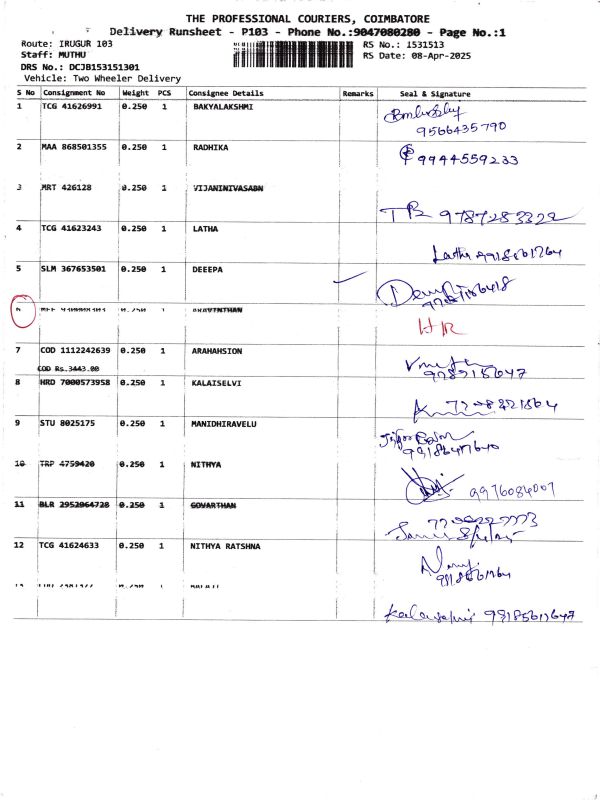 THE PROFESSIONAL COURIERS, COIMBATORE
Delivery Runsheet - P103 - Phone No.:9047080280 - Page No.:1
Route: IRUGUR 103 RS No.: 1531513
Staff: MUTHU RS Date: 08-Apr-2025
DRS No.: DCJB153151301
Vehicle: Two Wheeler Delivery
S No Consignment No Weight PCS Consignee Details Remarks Seal & Signature
1 TCG 41626991 0.250 1 BAKYALAKSHMI
9566435790
2 MAA 868501355 0.250 1 RADHIKA
9944559233
3 MRT 426128 0.250 1
9787283322
4 TCG 41623243 0.250 1 LATHA
Latha
5 SLM 367653501 0.250 1 DEEEPA
6 0.250 1 ARAVINTHAN
HR
7 COD 1112242639 0.250 1 ARAHAHSION
COD Rs.3443.00
8 HRD 7000573958 0.250 1 KALAISELVI
9 STU 8025175 0.250 1 MANIDHIRAVELU
10 TRP 4759420 0.250 1 NITHYA
9976084007
11 BLR 2952064728 0.250 1 GOVARTHAN
12 TCG 41624633 0.250 1 NITHYA RATSHNA
13 0.250 1